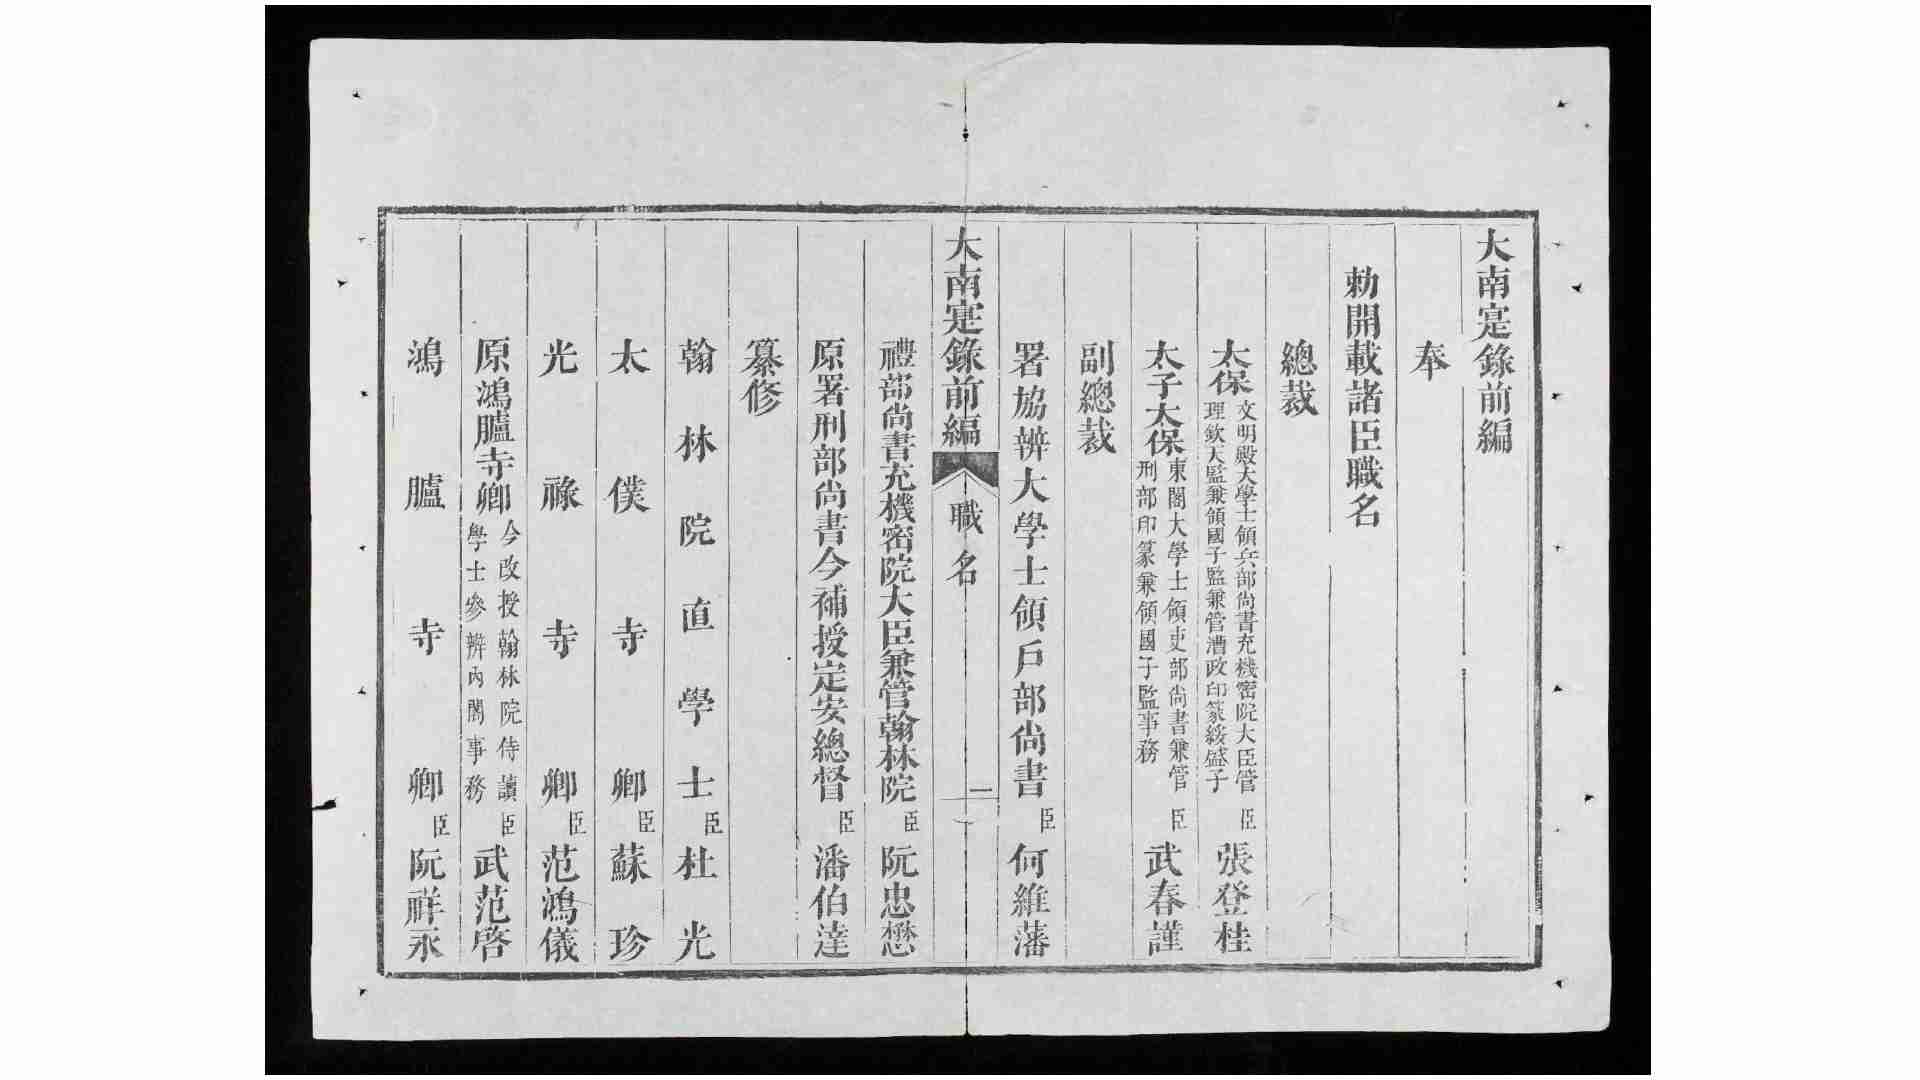 大南寔錄前編
奉
勅開載諸臣職名
總裁
太保文明殿大學士領兵部尚書充機密院大臣管理欽天監兼領國子監兼管漕政印篆綏盛子臣張登桂
太子太保東閣大學士領吏部尚書兼管刑部印篆兼領國子監事務臣武春謹
副總裁
署協辨大學士領戶部尚書臣何維藩
大南寔錄前編 職名 一
禮部尚書充機密院大臣兼管翰林院臣阮忠懋
原署刑部尚書今補授定安總督臣潘伯達
纂修
翰林院直學士臣杜光
太僕寺卿臣蘇珍
光祿寺卿臣范鴻儀
原鴻臚寺卿今改授翰林院侍讀學士參辨內閣事務臣武范啓
鴻臚寺卿臣阮祥永